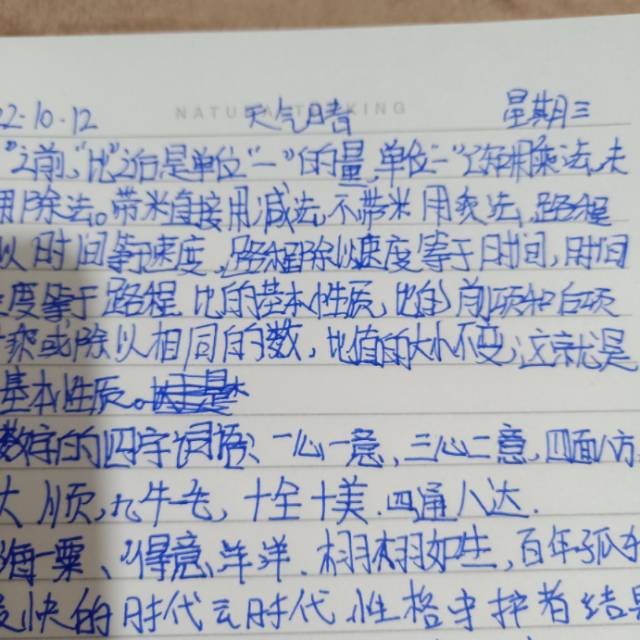 22.10.12 NATU KING 天气日 星期三
"之前,"比"之后是单位"一"的量,单位"一"乘法,未
用除法。带米直接用减法,不带米用乘法,路程
以时间等于速度,路程除以速度等于时间,用时间
度等于路程.比的基本性质,比的前项和后项
乘或除以相同的数,比值的大小不变,这就是
基本性质。
数字的四字词语、一心一意,三心二意,四面八方,
大顺,九牛一毛,十全十美.四通八达.
海一粟、得意洋洋.栩栩如生,百年孤
快的时代云时代,性格守护者结